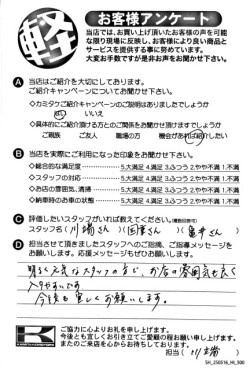 軽
お客様アンケート
当店では、お買い上げ頂いたお客様の声を可能
な限り現場に反映し、お客様により良い商品と
サービスを提供する事に努めています。
大変お手数ですが是非お声をお聞かせ下さい。
A 当店はご紹介を大切にしております。
ご紹介キャンペーンについてお聞かせ下さい。
◇カミタケご紹介キャンペーンのご説明はありましたでしょうか
はい いいえ
◇具体的にご紹介頂ける方とのご関係をお聞かせ頂けますでしょうか
ご親族 ご友人 職場の方 機会があれば紹介したい
B 当店を実際にご利用になった印象をお聞かせ下さい。
◇総合的な満足度 5.大満足 4.満足 3.ふつう 2.やや不満 1.不満
◇スタッフの対応 5.大満足 4.満足 3.ふつう 2.やや不満 1.不満
◇お店の雰囲気、清掃 5.大満足 4.満足 3.ふつう 2.やや不満 1.不満
◇納車時のお車の状態 5.大満足 4.満足 3.ふつう 2.やや不満 1.不満
C 評価したいスタッフがいれば教えてください。(複数回答可)
スタッフ名( 川端さん )( さん )( 亀井さん )
D 担当させて頂きましたスタッフへのご指摘、ご指導メッセージを
お願いします。応援メッセージもぜひお聞かせ下さい。
明るく元気なスタッフの方で、お店の雰囲気も良く
入りやすいです。
今後も宜しくお願いします。
ご協力に心よりお礼を申し上げます。
今後とも宜しくお引き立てご愛顧の程お願い申し上げます。
またのご来店を心からお待ちしております。
担当( 川端 )
SH_250516_HI_500